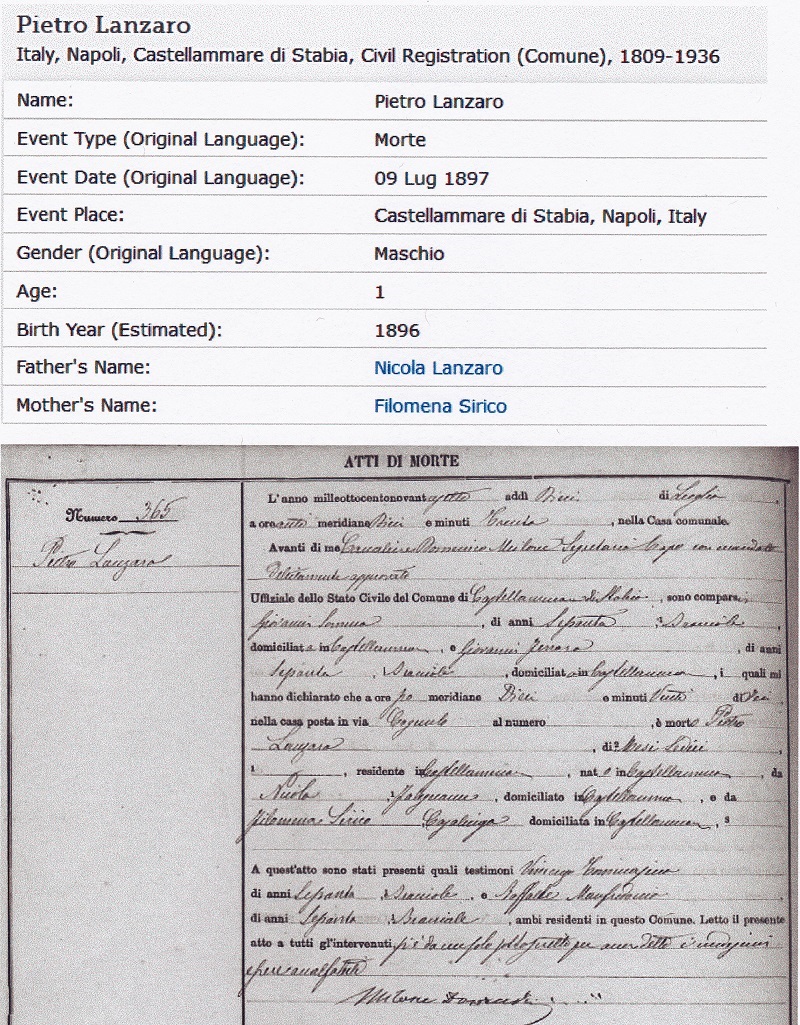 Pietro Lanzaro
Italy, Napoli, Castellammare di Stabia, Civil Registration (Comune), 1809-1936
Name: Pietro Lanzaro
Event Type (Original Language): Morte
Event Date (Original Language): 09 Lug 1897
Event Place: Castellammare di Stabia, Napoli, Italy
Gender (Original Language): Maschio
Age: 1
Birth Year (Estimated): 1896
Father's Name: Nicola Lanzaro
Mother's Name: Filomena Sirico
ATTI DI MORTE
Numero 365
Pietro Lanzaro
L'anno milleottocentonovantasette addì Dieci di Luglio,
a ore anti meridiane Dieci e minuti Trenta, nella Casa comunale.
Avanti di me Cavaliere Domenico Milone Segretario Capo con mandato
Debitamente approvato
Uffiziale dello Stato Civile del Comune di Castellammare di Stabia, sono comparsi
Giovanni, di anni Sessanta,
domiciliato in Castellammare, e Giovanni Ferrara, di anni
Sessanta, domiciliato in Castellammare, i quali mi
hanno dichiarato che a ore po meridiane Dieci e minuti Venti di Ieri,
nella casa posta in via Cognulo al numero, è morto Pietro
Lanzaro, di Mesi Sedici
, residente in Castellammare, nato in Castellammare, da
Nicola, Falegname, domiciliato in Castellammare, e da
Filomena Sirico, Casalinga domiciliata in Castellammare,
A quest'atto sono stati presenti quali testimoni Vincenzo Tommasino
di anni Sessanta, e Raffaele Manfredonio
di anni Sessanta, ambi residenti in questo Comune. Letto il presente
atto a tutti gl'intervenuti si è da me solo sottoscritto per aver detto i
essere analfabeti
Milone